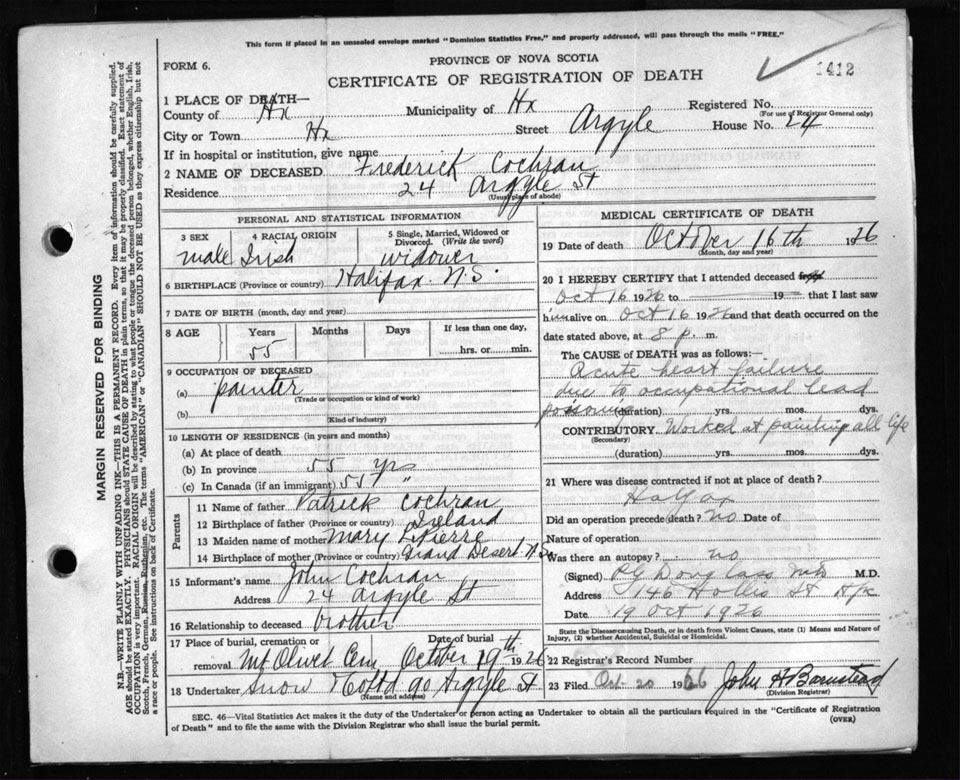 This form if placed in an unsealed envelope marked "Dominion Statistics Free," and properly addressed, will pass through the mails "FREE."
FORM 6.
PROVINCE OF NOVA SCOTIA
CERTIFICATE OF REGISTRATION OF DEATH
1412
1 PLACE OF DEATH—
County of Hx Municipality of Hx Registered No.
(For use of Registrar General only)
City or Town Hx Street Argyle House No. 24
If in hospital or institution, give name
2 NAME OF DECEASED Frederick Cochran
Residence 24 Argyle St
(Usual place of abode)
PERSONAL AND STATISTICAL INFORMATION
3 SEX 4 RACIAL ORIGIN 5 Single, Married, Widowed or Divorced. (Write the word)
male Irish widower
6 BIRTHPLACE (Province or country) Halifax N.S.
7 DATE OF BIRTH (month, day and year)
8 AGE Years Months Days If less than one day,
55 hrs. or min.
9 OCCUPATION OF DECEASED
(a) painter
(Trade or occupation or kind of work)
(b)
(Kind of industry)
10 LENGTH OF RESIDENCE (in years and months)
(a) At place of death
(b) In province 55 yrs
(c) In Canada (if an immigrant) 55 "
Parents
11 Name of father Patrick Cochran
12 Birthplace of father (Province or country) Ireland
13 Maiden name of mother Mary
14 Birthplace of mother (Province or country) Grand Desert N.S.
15 Informant's name John Cochran
Address 24 Argyle St
16 Relationship to deceased brother
17 Place of burial, cremation or removal Mt Olivet Cem Date of burial October 19th 1926
18 Undertaker Snow & Co Ltd 90 Argyle St
(Name and address)
MEDICAL CERTIFICATE OF DEATH
19 Date of death October 16th 1926
(Month, day and year)
20 I HEREBY CERTIFY that I attended deceased from
Oct 16 1926 to — 19— that I last saw
him alive on Oct 16 1926 and that death occurred on the
date stated above, at 8 p. m.
The CAUSE of DEATH was as follows:—
Acute heart failure
due to occupational lead
poisoning (duration) yrs. mos. dys.
CONTRIBUTORY Worked at painting all life
(Secondary)
(duration) yrs. mos. dys.
21 Where was disease contracted if not at place of death?
Halifax
Did an operation precede death? no Date of
Nature of operation
Was there an autopsy? no
(Signed) P G Douglass M.D.
Address 146 Hollis St Hfx
Date 19 Oct 1926
State the Disease causing Death, or in death from Violent Causes, state (1) Means and Nature of Injury, (2) whether Accidental, Suicidal or Homicidal.
22 Registrar's Record Number
23 Filed Oct 20 1926 John A Barnstead
(Division Registrar)
SEC. 46—Vital Statistics Act makes it the duty of the Undertaker or person acting as Undertaker to obtain all the particulars required in the "Certificate of Registration
of Death" and to file the same with the Division Registrar who shall issue the burial permit.
(OVER)
MARGIN RESERVED FOR BINDING
N.B.—WRITE PLAINLY WITH UNFADING INK—THIS IS A PERMANENT RECORD. Every item of information should be carefully supplied.
AGE should be stated EXACTLY. PHYSICIANS should STATE CAUSE OF DEATH in plain terms, so that it may be properly classified. Exact statement of
OCCUPATION is very important. RACIAL ORIGIN will be described by stating to what people or tongue the deceased person belonged, whether English, Irish,
Scotch, French, German, Russian, Ruthenian, etc. The terms "AMERICAN" or "CANADIAN" SHOULD NOT BE USED as they express citizenship but not
a race or people. See instructions on back of Certificate.